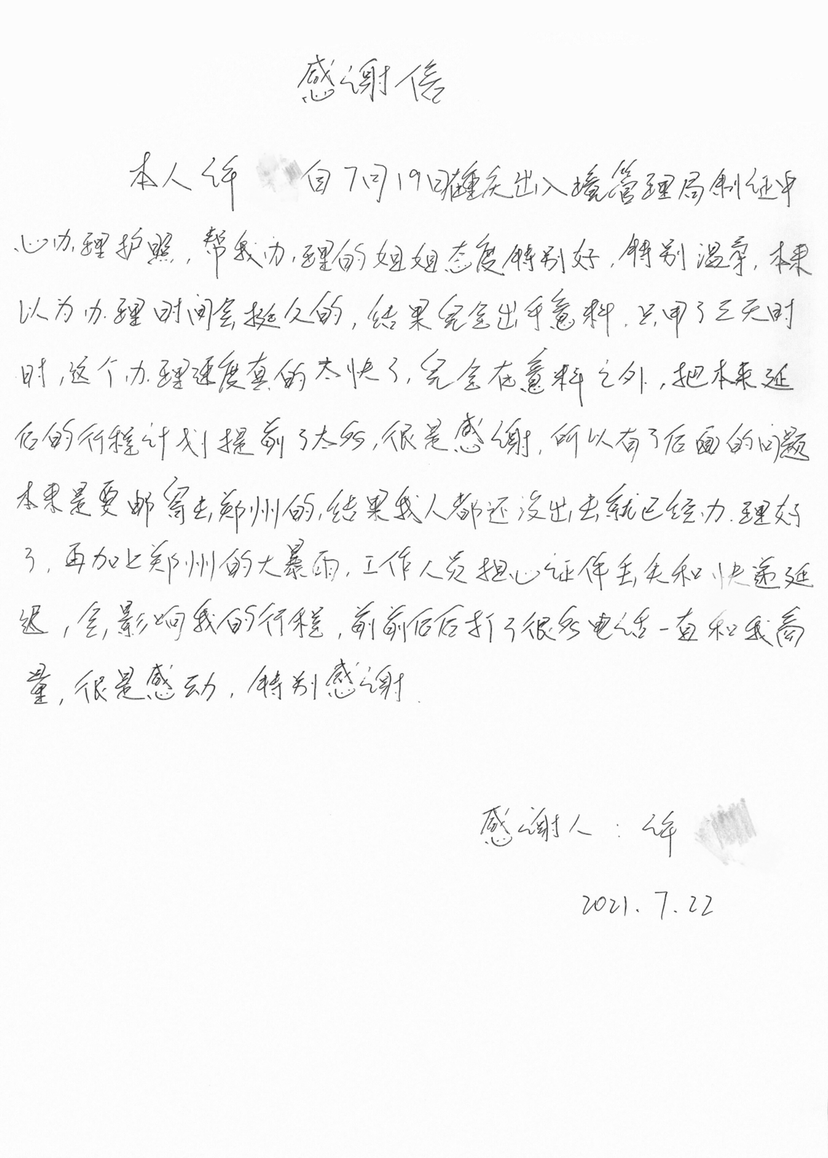 感谢信
本人许 自7月19日在重庆出入境管理局制证中
心办理护照,帮我办理的姐姐态度特别好,特别温柔,本来
以为办理时间会挺久的,结果完全出乎意料,只用了三天时
时,这个办理速度真的太快了,完全在意料之外,把本来延
后的行程计划提前了太多,很是感谢,所以有了后面的问题
本来是要邮寄去郑州的,结果我人都还没出去就已经办理好
了,再加上郑州的大暴雨,工作人员担心证件丢失和快递延
迟,会影响我的行程,前前后后打了很多电话一直和我商
量,很是感动,特别感谢.
感谢人:许
2021.7.22